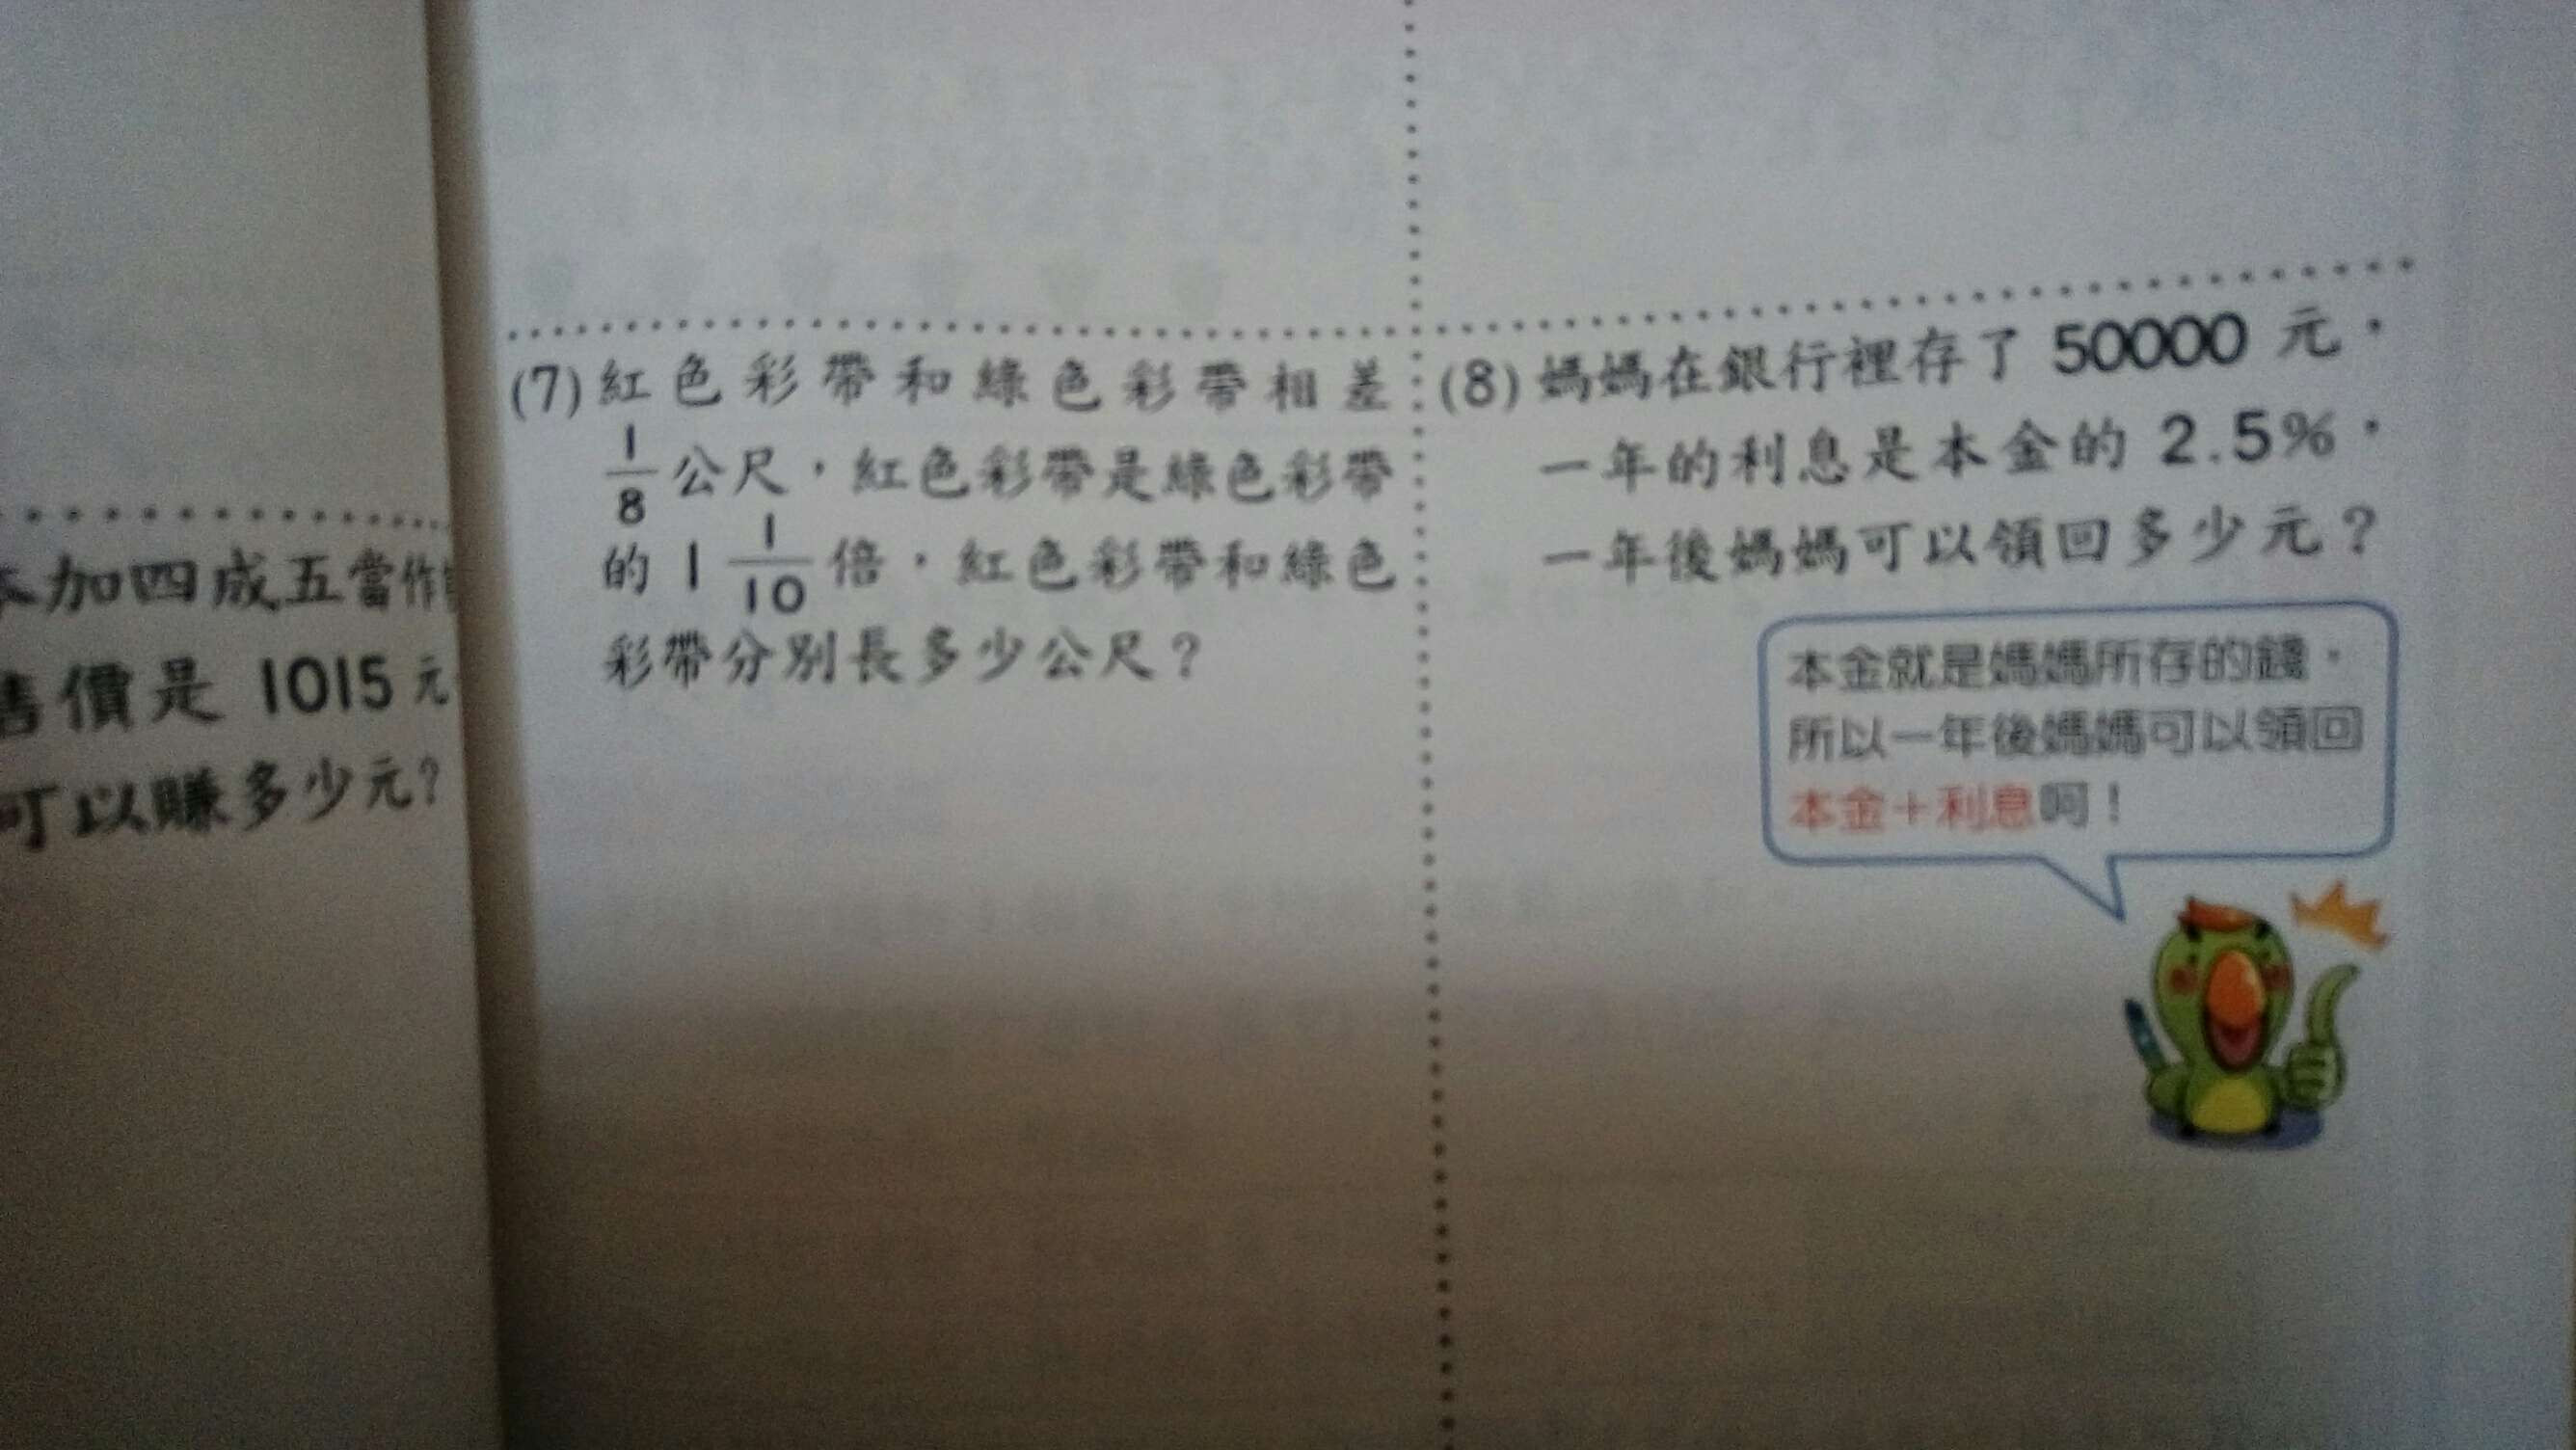 加四成五當作
售價是 1015 元
可以賺多少元?
(7) 紅色彩帶和綠色彩帶相差
1/8 公尺，紅色彩帶是綠色彩帶
的 1 1/10 倍，紅色彩帶和綠色
彩帶分別長多少公尺？
(8) 媽媽在銀行裡存了 50000 元，
一年的利息是本金的 2.5%，
一年後媽媽可以領回多少元？
本金就是媽媽所存的錢，
所以一年後媽媽可以領回
本金＋利息呵！